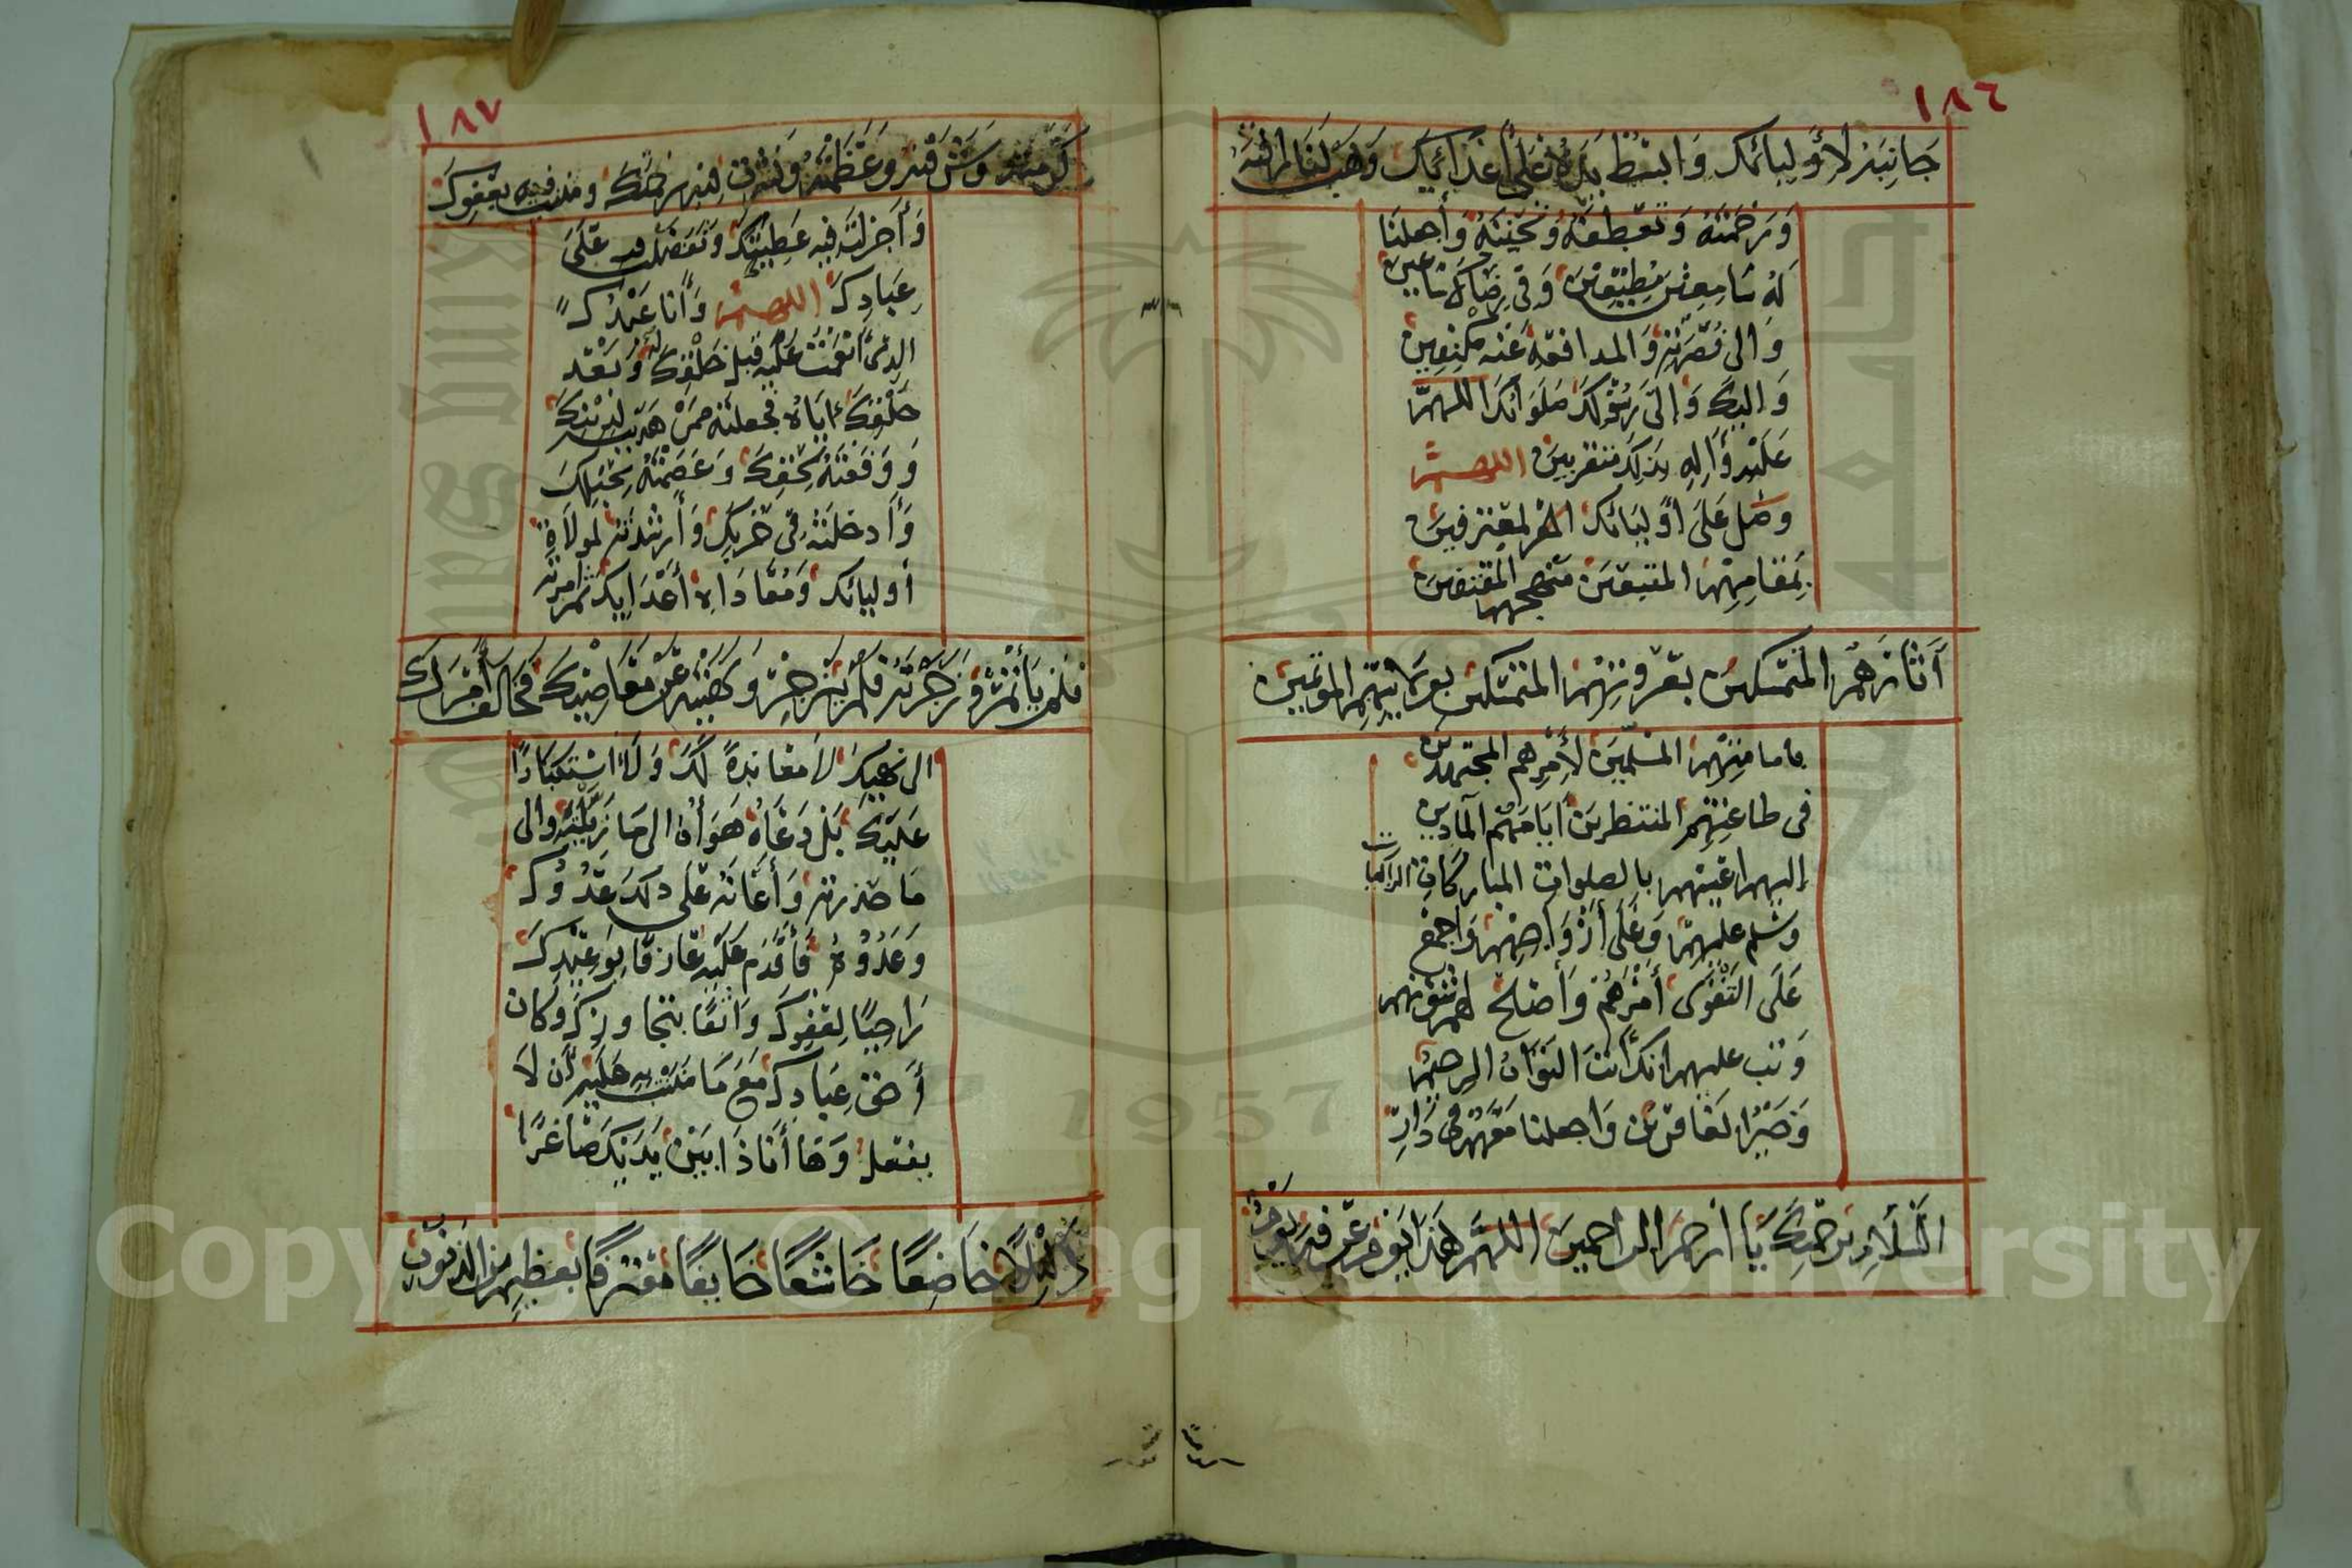 ١٨٦
جَانِبَهُ لِأَوْلِيَائِكَ وَابْسُطْ يَدَهُ عَلَى أَعْدَائِكَ وَهَبْ لَنَا رَأْفَتَهُ
وَرَحْمَتَهُ وَتَعَطُّفَهُ وَتَحَنُّنَهُ وَاجْعَلْنَا
لَهُ سَامِعِينَ مُطِيعِينَ وَفِي رِضَاكَ سَاعِينَ
وَالى نُصْرَتِهِ وَالمدافعة عَنْهُ مُكْنِفِينَ
وَإليكَ وَإلَى رَسُولِكَ صَلَوَاتُكَ اللهمّ
عَلَيْهِ وَآلِهِ بذلك متقربين اللهم
وصل عَلَى أَوْلِيَائِكَ المعترفين
بِمَقَامِهِمْ المتبعين منهجهم المقتفين
آثَارَهُمُ المتمسكين بعُرْوتِهِمْ المتمسكين بِوِلَايَتِهِمْ المؤتمين
بامامتِهِمْ المسلمينَ لأَمْرِهم المجتهدين
فى طاعتِهِم المنتظرين أيامَهُم المادين
إليهم اعينهم بالصلوات المباركات الزاكيات
وسلم عليهم وَعَلَى أَرْوَاحِهِمْ وَاجْمَعْ
عَلَى التَّقْوَى أَمْرَهُمْ وَأَصْلِحْ لهم شؤنهم
وَتب عليهم انكَ انتَ التَوَّابُ الرحيم
وَخَيْرُ الغافرين وَاجعلنا مَعَهُمْ فِي دَارِ
السَّلَامِ بِرَحْمَتِكَ يَا ارْحَمَ الراحمين اللهُمَّ هَذَا يَوْمُ عَرَفَةَ يَوْمٌ
١٨٧
كَرَّمْتَهُ وَشَرَّفْتَهُ وَعَظَّمْتَهُ وَنَشَرْتَ فِيهِ رَحْمَتَكَ ومننت فيه بعَفْوِكَ
وَأَجْزَلْتَ فِيهِ عَطِيَّتَكَ وَتَفَضَّلْتَ به عَلَى
عِبَادِكَ اللهم وَأَنَا عَبْدُكَ
الذى أَنْعَمْتَ عَلَيْهِ قَبْلَ خَلْقِكَ لَهُ وَبَعْدَ
خَلْقِكَ إيَّاهُ فجعلته مِمَّنْ هَدَيْتَه لِدِينِكَ
وَوَفَّقْتَهُ لِحَقِّكَ وَعَصَمْتَهُ بِحَبْلِكَ
وَأَدخلته فِي حِزْبِكَ وَأَرشدته لمولاة
أوليائك وَمُعَادَاةِ أَعْدَايِكَ ثم امرته
فلم يَأْتَمِرْ وَزَجَرْتَهُ فلم يَنْزَجِرْ وَنَهَيْتَهُ عَنْ مَعَاصِيكَ فَخَالَفَ أَمْرَكَ
الى نَهْيِكَ لَا معَانَدَةً لَكَ وَلَا اسْتكبَارًا
عَلَيْكَ بَلْ دَعَاهُ هَوَاهُ الى مَا زَيَّلْتَهُ وَالى
مَا حَذرته وَأَعَانَهُ عَلَى ذلكَ عَدُوُّكَ
وَعَدُوُّهُ فَأَقْدَمَ عَلَيْهِ عَارفًا بِوَعِيدِكَ
رَاجِيًا لِعَفْوِكَ وَاثِقًا بتجاوزِكَ وَكَانَ
أَحَقَّ عِبَادِكَ مَعَ مَا مَنَنْتَ به عَلَيْهِ أن لَا
يفعل وَهَا أَنَاذَا بَيْنَ يَدَيْكَ صَاغِرًا
ذَلِيْلًا خَاضِعًا خَاشِعًا خَايفًا معْتَرِفًا بعظيم من الذنوب
1957
Copyright © King Saud University